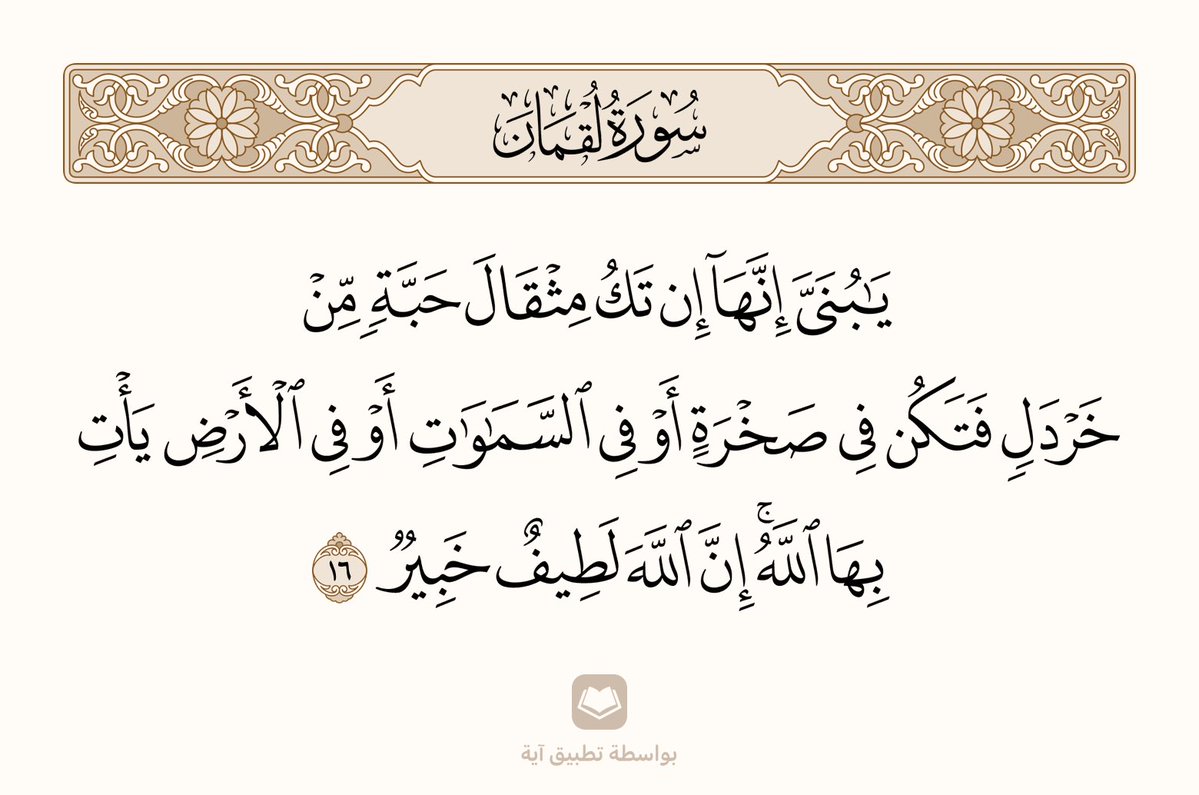 سُورَةُ لُقْمَانَ
يَـٰبُنَىَّ إِنَّهَآ إِن تَكُ مِثْقَالَ حَبَّةٍۢ مِّنْ
خَرْدَلٍۢ فَتَكُن فِى صَخْرَةٍ أَوْ فِى ٱلسَّمَـٰوَٰتِ أَوْ فِى ٱلْأَرْضِ يَأْتِ
بِهَا ٱللَّهُ ۚ إِنَّ ٱللَّهَ لَطِيفٌ خَبِيرٌۭ ١٦
بواسطة تطبيق آية